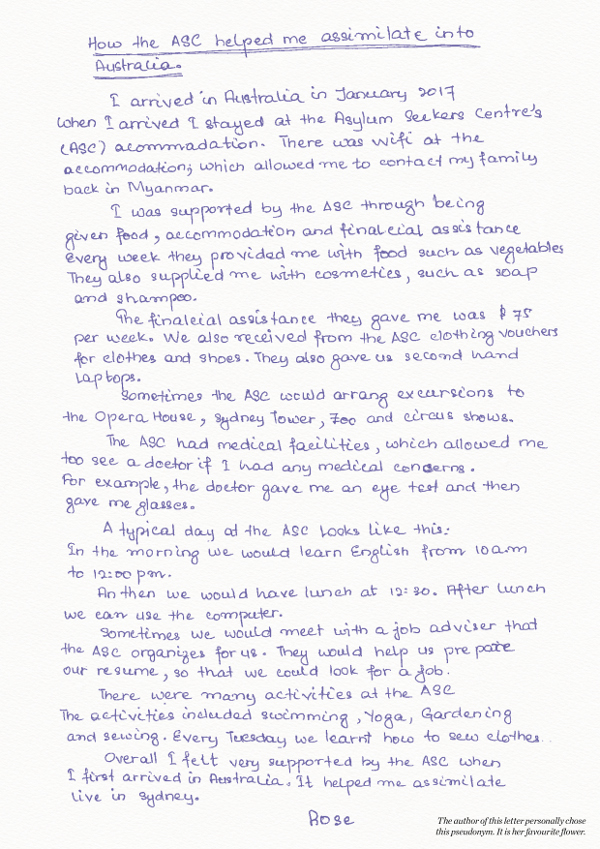 How the ASC helped me assimilate into
Australia.
I arrived in Australia in January 2017
when I arrived I stayed at the Asylum Seekers Centre's
(ASC) acommadation. There was wifi at the
accommodation; which allowed me to contact my family
back in Myanmar.
I was supported by the ASC through being
given food, accommodation and finalcial assistance
Every week they provided me with food such as vegetables
They also supplied me with cosmetics, such as soap
and shampoo.
The finalcial assistance they gave me was $75
per week. We also received from the ASC clothing vouchers
for clothes and shoes. They also gave us second hand
laptops.
Sometimes the ASC would arrang excursions to
the Opera House, Sydney Tower, Zoo and circus shows.
The ASC had medical facilities, which allowed me
too see a doctor if I had any medical concerns.
For example, the doctor gave me an eye test and then
gave me glasses.
A typical day at the ASC Looks like this:
In the morning we would learn English from 10am
to 12:00 pm.
An then we would have lunch at 12:30. After lunch
we can use the computer.
Sometimes we would meet with a job adviser that
the ASC organizes for us. They would help us prepare
our resume, so that we could look for a job.
There were many activities at the ASC
The activities included swimming, Yoga, Gardening
and sewing. Every Tuesday we learnt how to sew clothes..
Overall I felt very supported by the ASC when
I first arrived in Australia. It helped me assimilate
live in Sydney.
Rose
The author of this letter personally chose
this pseudonym. It is her favourite flower.